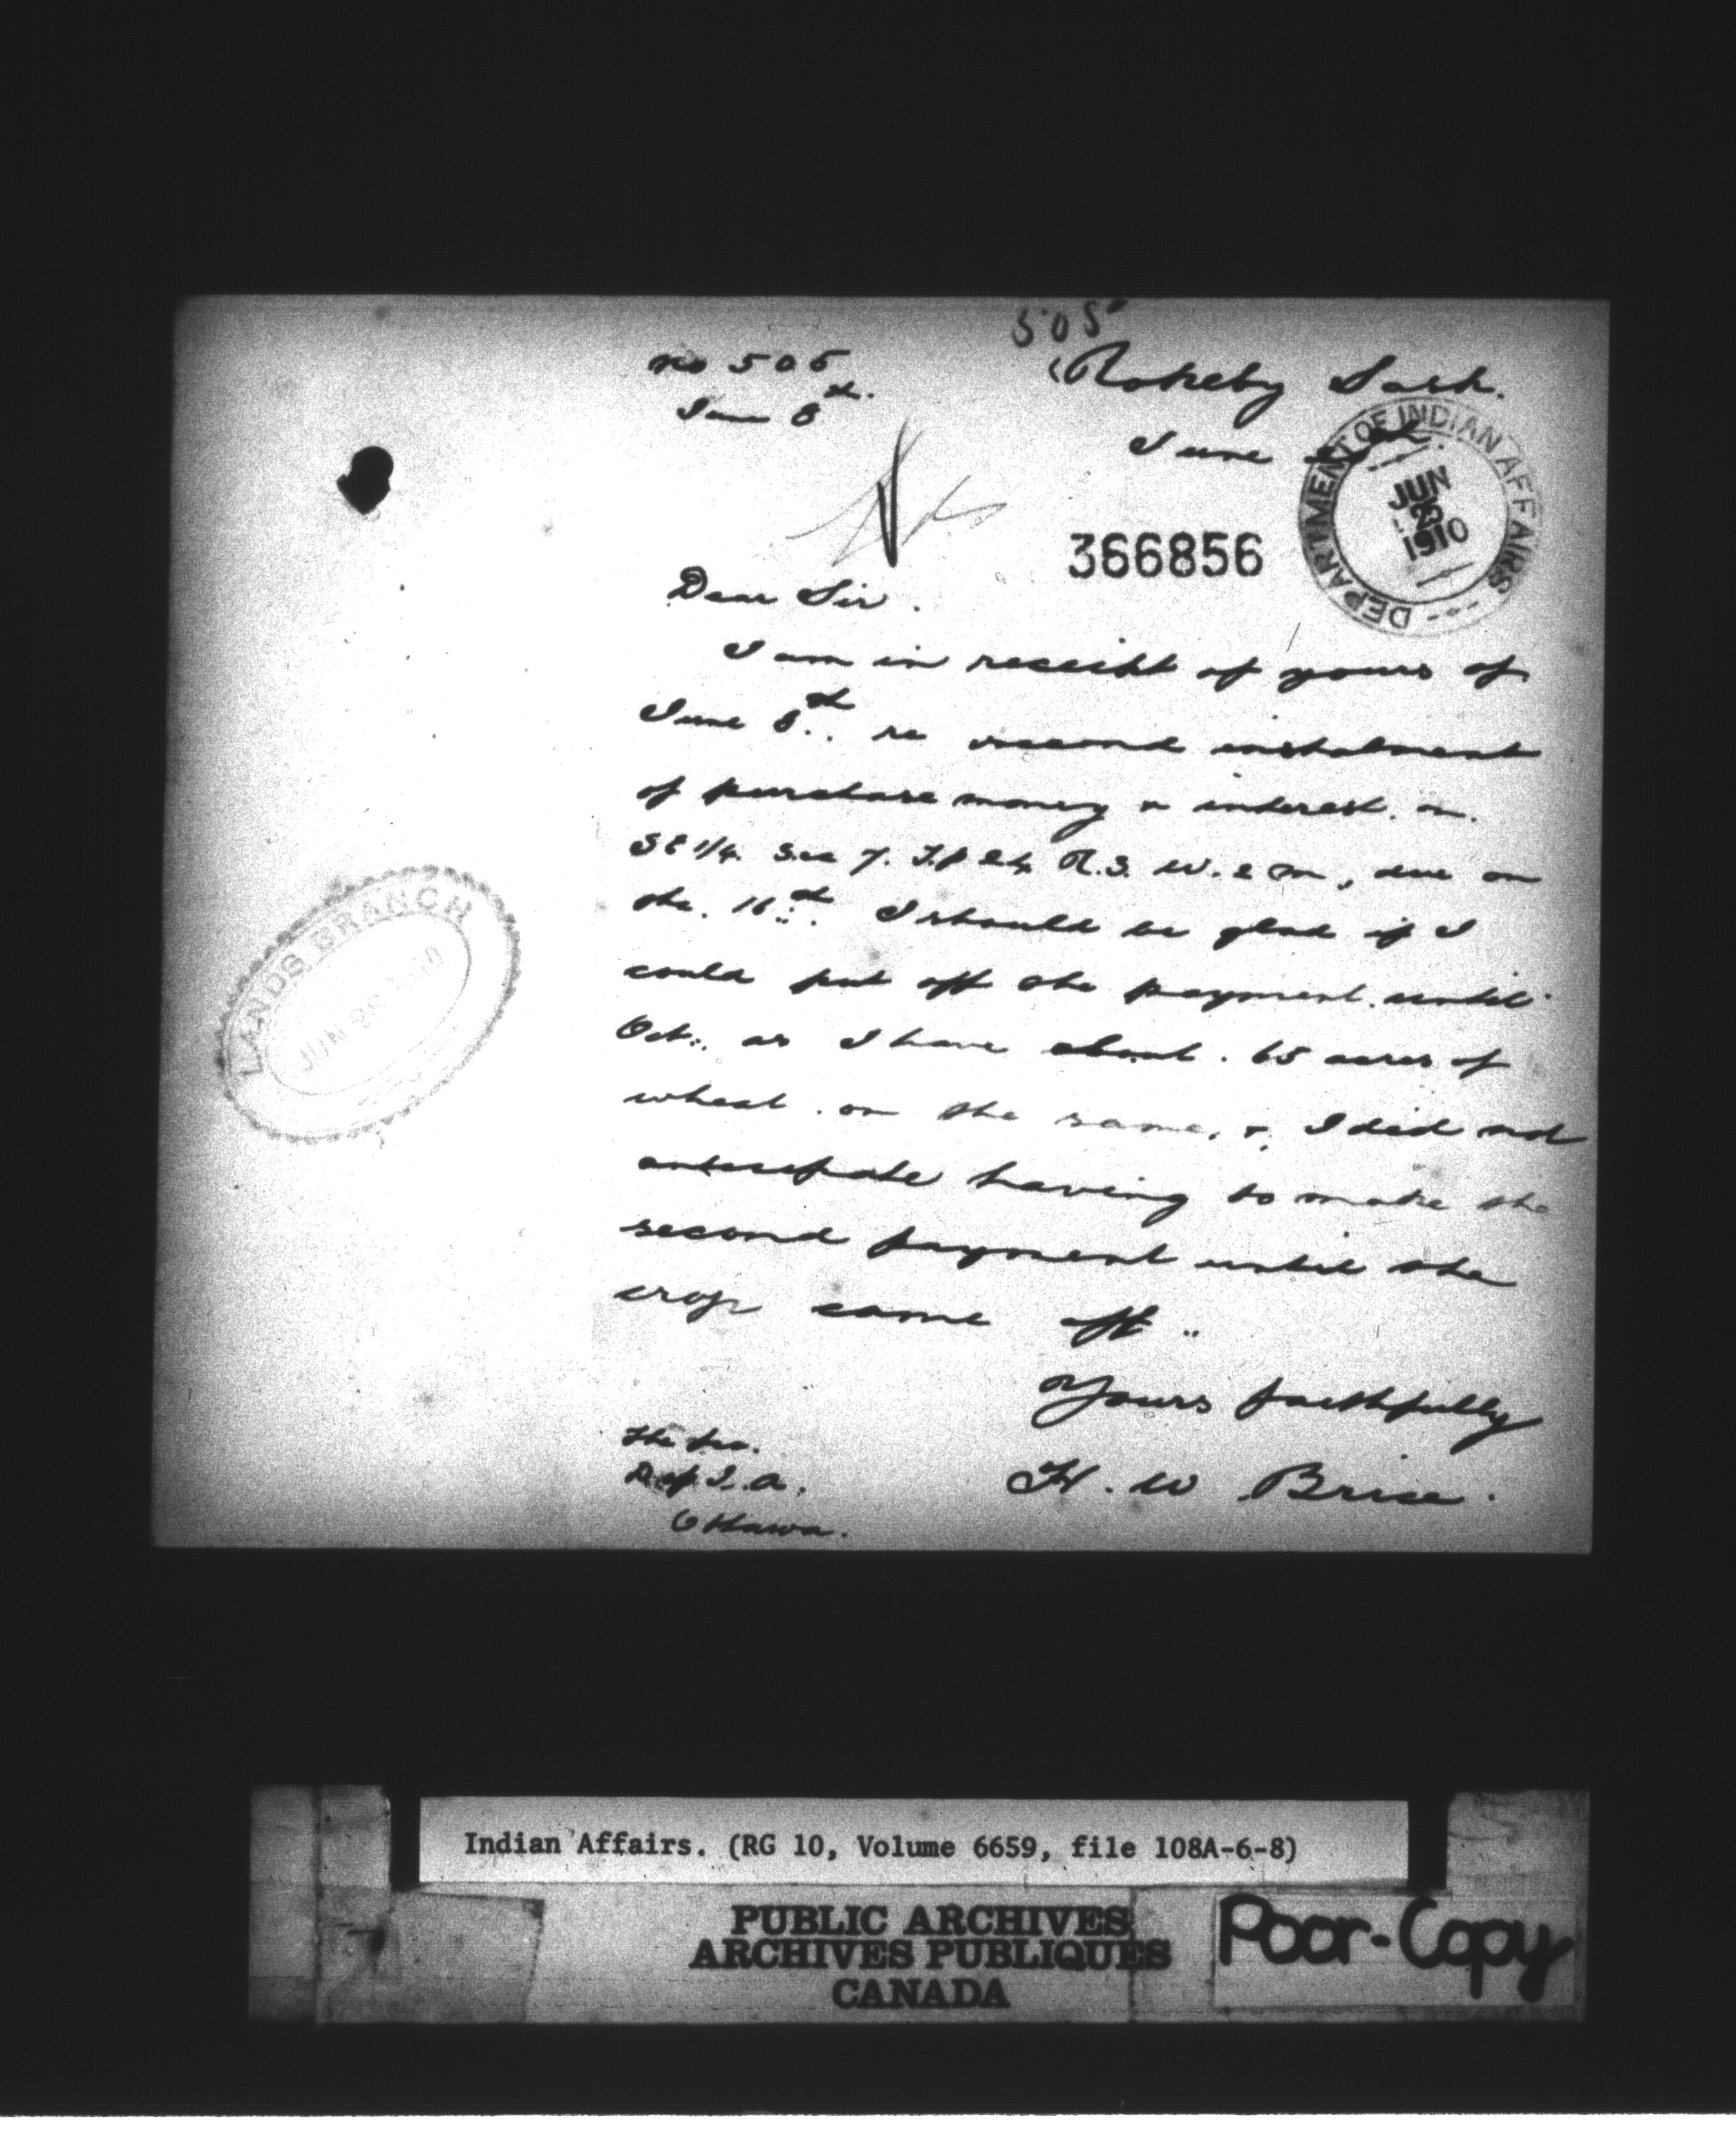 505
no 505
June 8th.
Rokeby Sask.
June
DEPARTMENT OF INDIAN AFFAIRS
JUN
1910
366856
Dear Sir.
I am in receipt of yours of
June 8th. re second instalment
of purchase money & interest. on.
SE 1/4. Sec 7. T.p 24 R.3. W. 2 m, due on
the. 16th. I should be glad if I
could put off the payment. until
Oct. as I have about. 65 acres of
wheat. on the same, & I did not
antecipate having to make the
second payment until the
crop came off.
Yours faithfully
H. W Brice.
The Sec.
Dep I. A.
Ottawa.
LANDS BRANCH
JUN
Indian Affairs. (RG 10, Volume 6659, file 108A-6-8)
PUBLIC ARCHIVES
ARCHIVES PUBLIQUES
CANADA
Poor-Copy